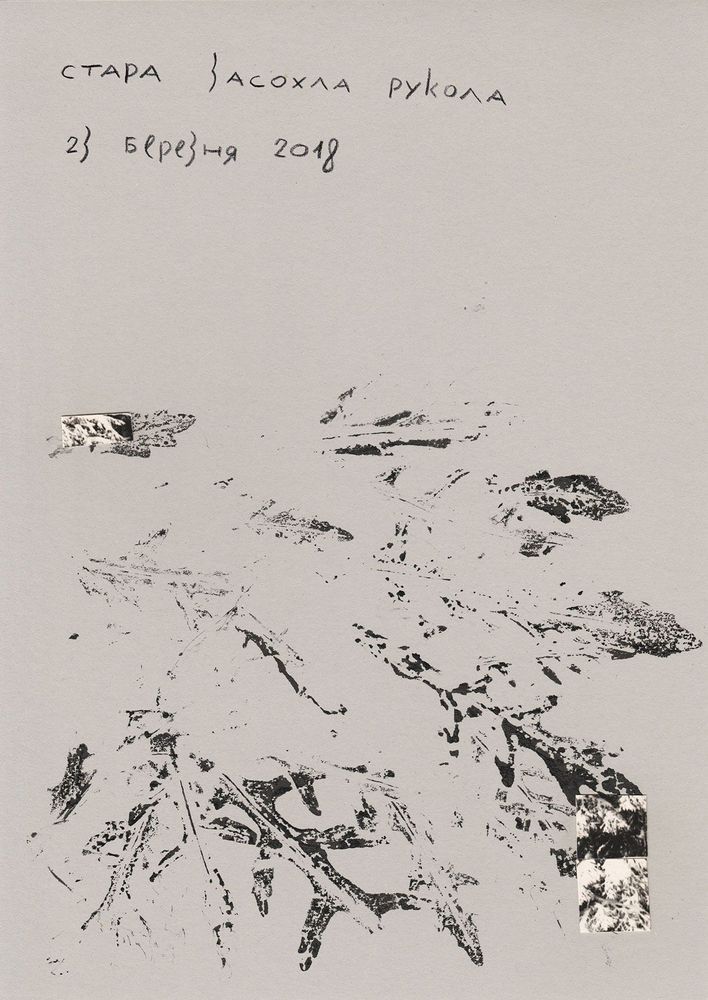 стара засохла рукола
23 березня 2018